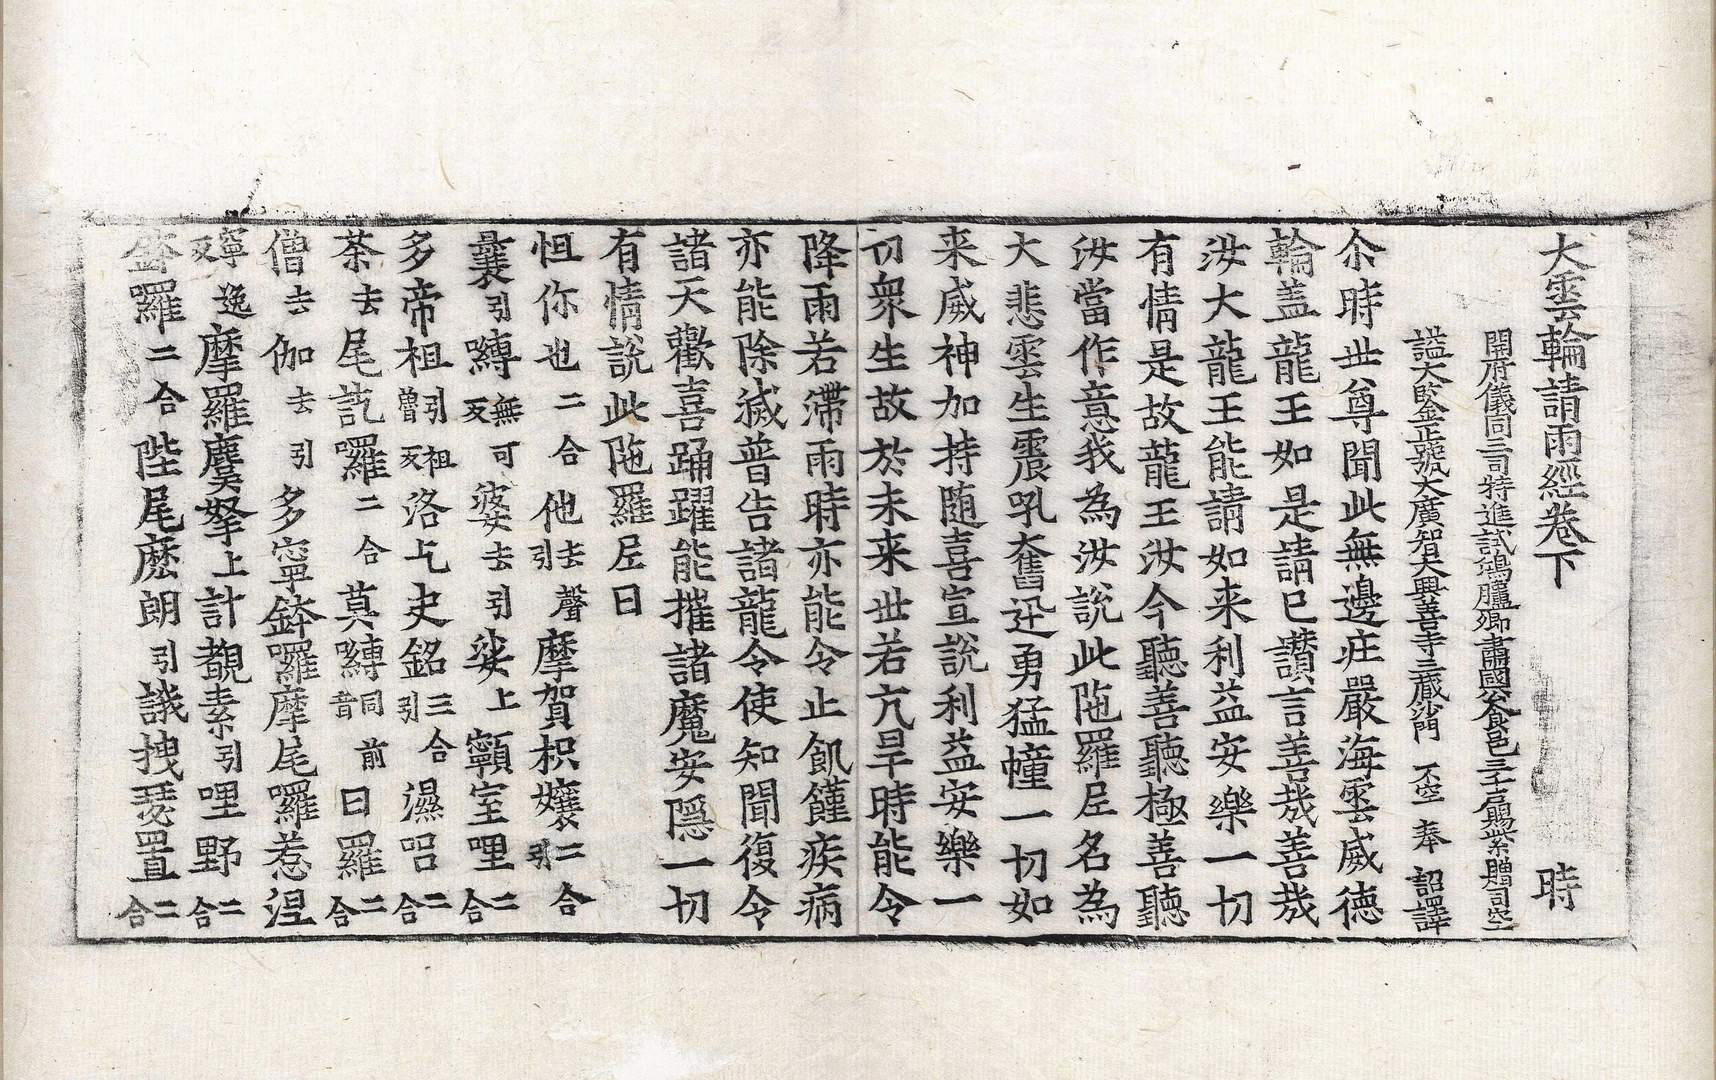 大雲輪請雨經卷下 時
開府儀同三司特進試鴻臚卿肅國公食邑三千戶賜紫贈司空
謚大鍳正號大廣智大興善寺三蔵沙門 不空 奉 詔譯
尒時世尊聞此無邊庄嚴海雲威德
輪盖龍王如是請巳讃言善㢤善㢤
汝大龍王能請如来利益安樂一切
有情是故龍王汝今聽善聽極善聽
汝當作意我為汝說此陁羅尼名為
大悲雲生震吼奮迅勇猛幢一切如
来威神加持随喜宣說利益安樂一
切衆生故於未来世若亢旱時能令
降雨若滯雨時亦能令止飢饉疾病
亦能除滅普告諸龍令使知聞復令
諸天歡喜踊躍能摧諸魔安隠一切
有情說此陁羅尼曰
怛你也二合他去聲引摩賀枳孃二合引
曩引嚩無可反婆去引娑上顊室哩二合
多帝祖引祖曽反洛乞史銘三合引濕呬二合
荼去尾訖囉二合莫嚩同前音曰羅二合
僧去伽去引多寧鉢囉摩尾囉惹涅
寧逸反摩羅麌拏上計覩素引哩野二合
囉二合陛尾麽朗引議拽瑟置二合